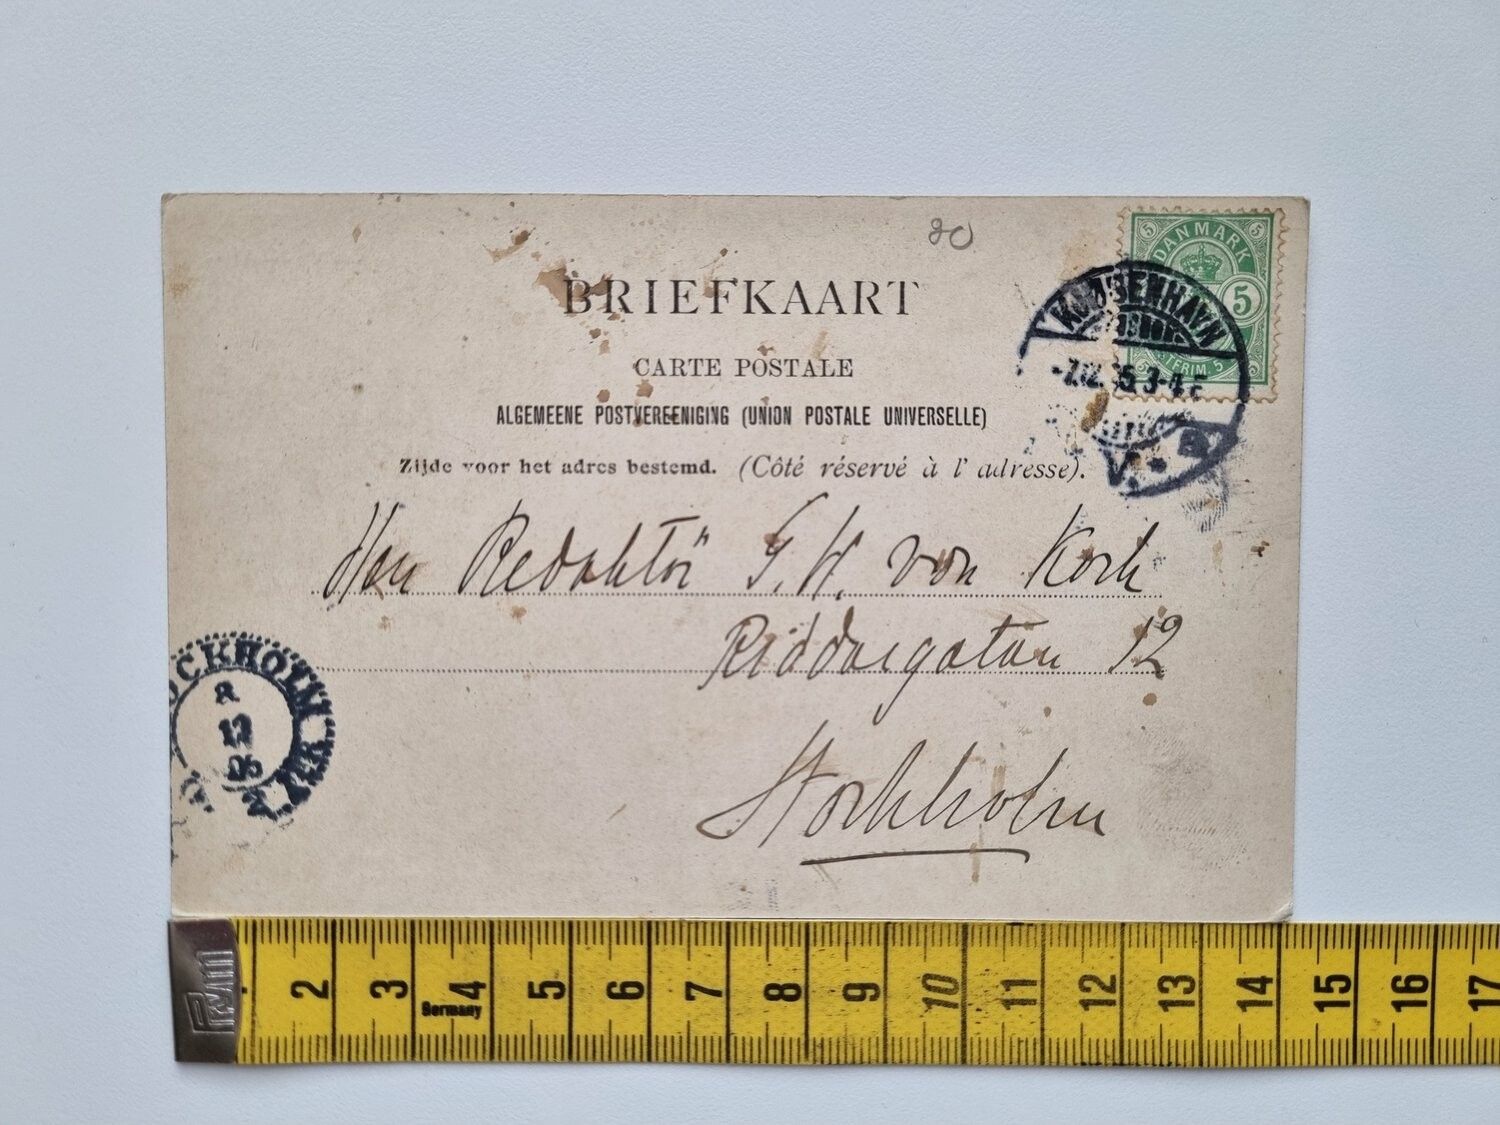 20
BRIEFKAART
CARTE POSTALE
ALGEMEENE POSTVEREENIGING (UNION POSTALE UNIVERSELLE)
Zijde voor het adres bestemd. (Côté réservé à l'adresse).
DANMARK
5 5
5
POSTFRIM. 5
KJØBENHAVN
-7.12. 5 3-4 E
V.
Herr Redaktör G. H. von Koch
Riddargatan 12
Stockholm
STOCKHOLM
8
12
05
Prym
2 3 4 5 6 7 8 9 10 11 12 13 14 15 16 17
Germany